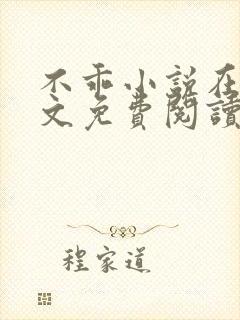 不乖小说在
文免費閱讀
程家道